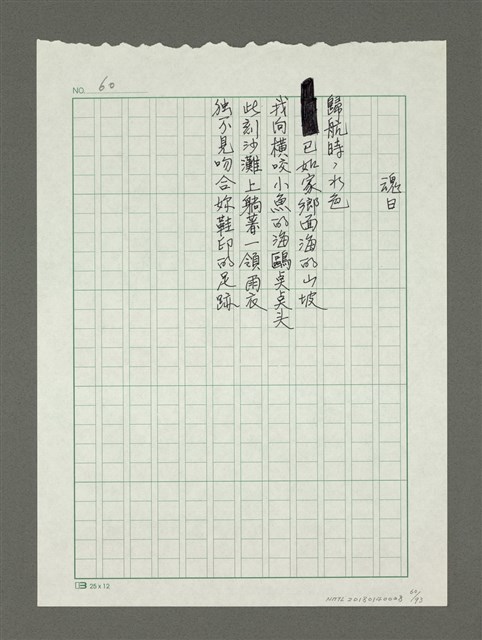 NO. 60
魂日
歸航時，水色
已如家鄉面海的山坡
我向橫咬小魚的海鷗点点头
此刻沙灘上躺著一領雨衣
独不見吻合妳鞋印的足跡
25 x 12
NMTL 20180140008
60/93